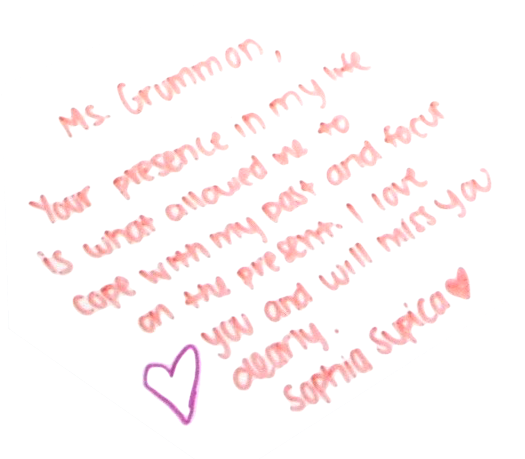 Ms. Grummon,
Your presence in my life
is what allowed me to
cope with my past and focus
on the present. I love
you and will miss you
dearly.
Sophia Supica